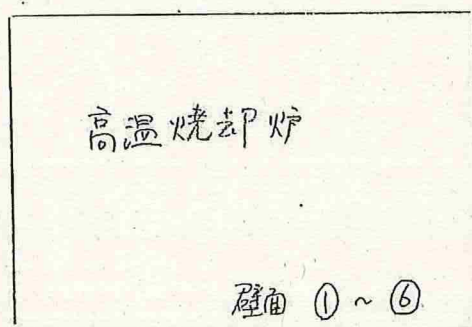 高温焼却炉
壁面 ① ~ ⑥